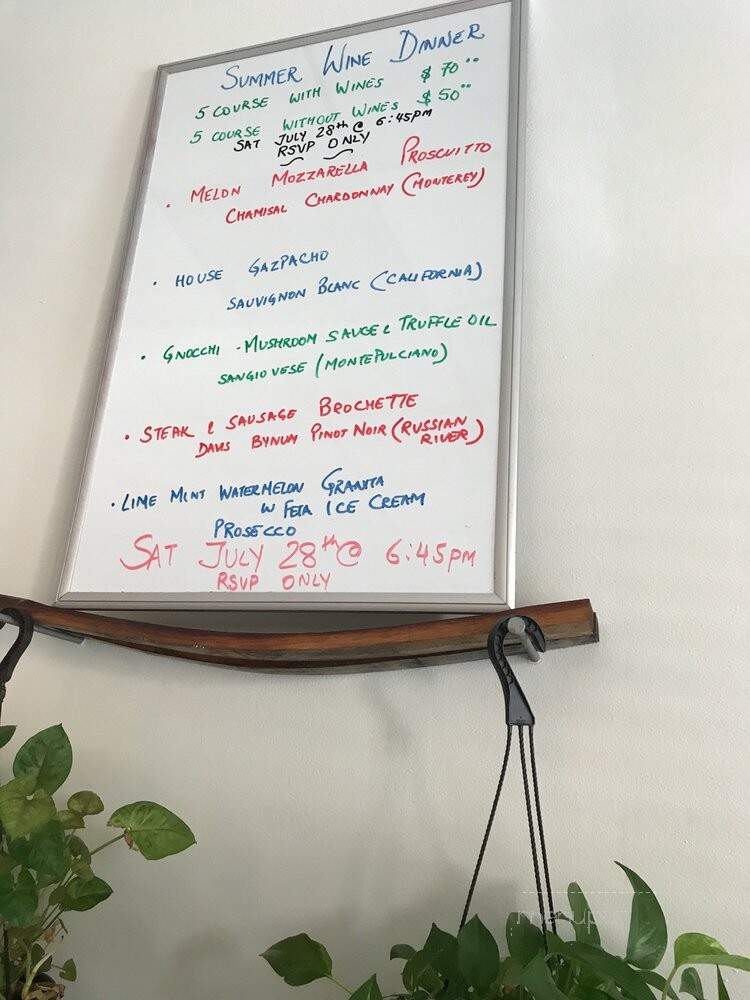 SUMMER WINE DINNER
5 COURSE WITH WINES $70.00
5 COURSE WITHOUT WINES $50.00
SAT JULY 28th @ 6:45PM
RSVP ONLY
. MELON MOZZARELLA PROSCUITTO
CHAMISAL CHARDONNAY (MONTEREY)
. HOUSE GAZPACHO
SAUVIGNON BLANC (CALIFORNIA)
. GNOCCHI - MUSHROOM SAUCE & TRUFFLE OIL
SANGIOVESE (MONTEPULCIANO)
. STEAK & SAUSAGE BROCHETTE
DAVIS BYNUM PINOT NOIR (RUSSIAN
RIVER)
. LIME MINT WATERMELON GRANITA
W FETA ICE CREAM
PROSECCO
SAT JULY 28th @ 6:45PM
RSVP ONLY